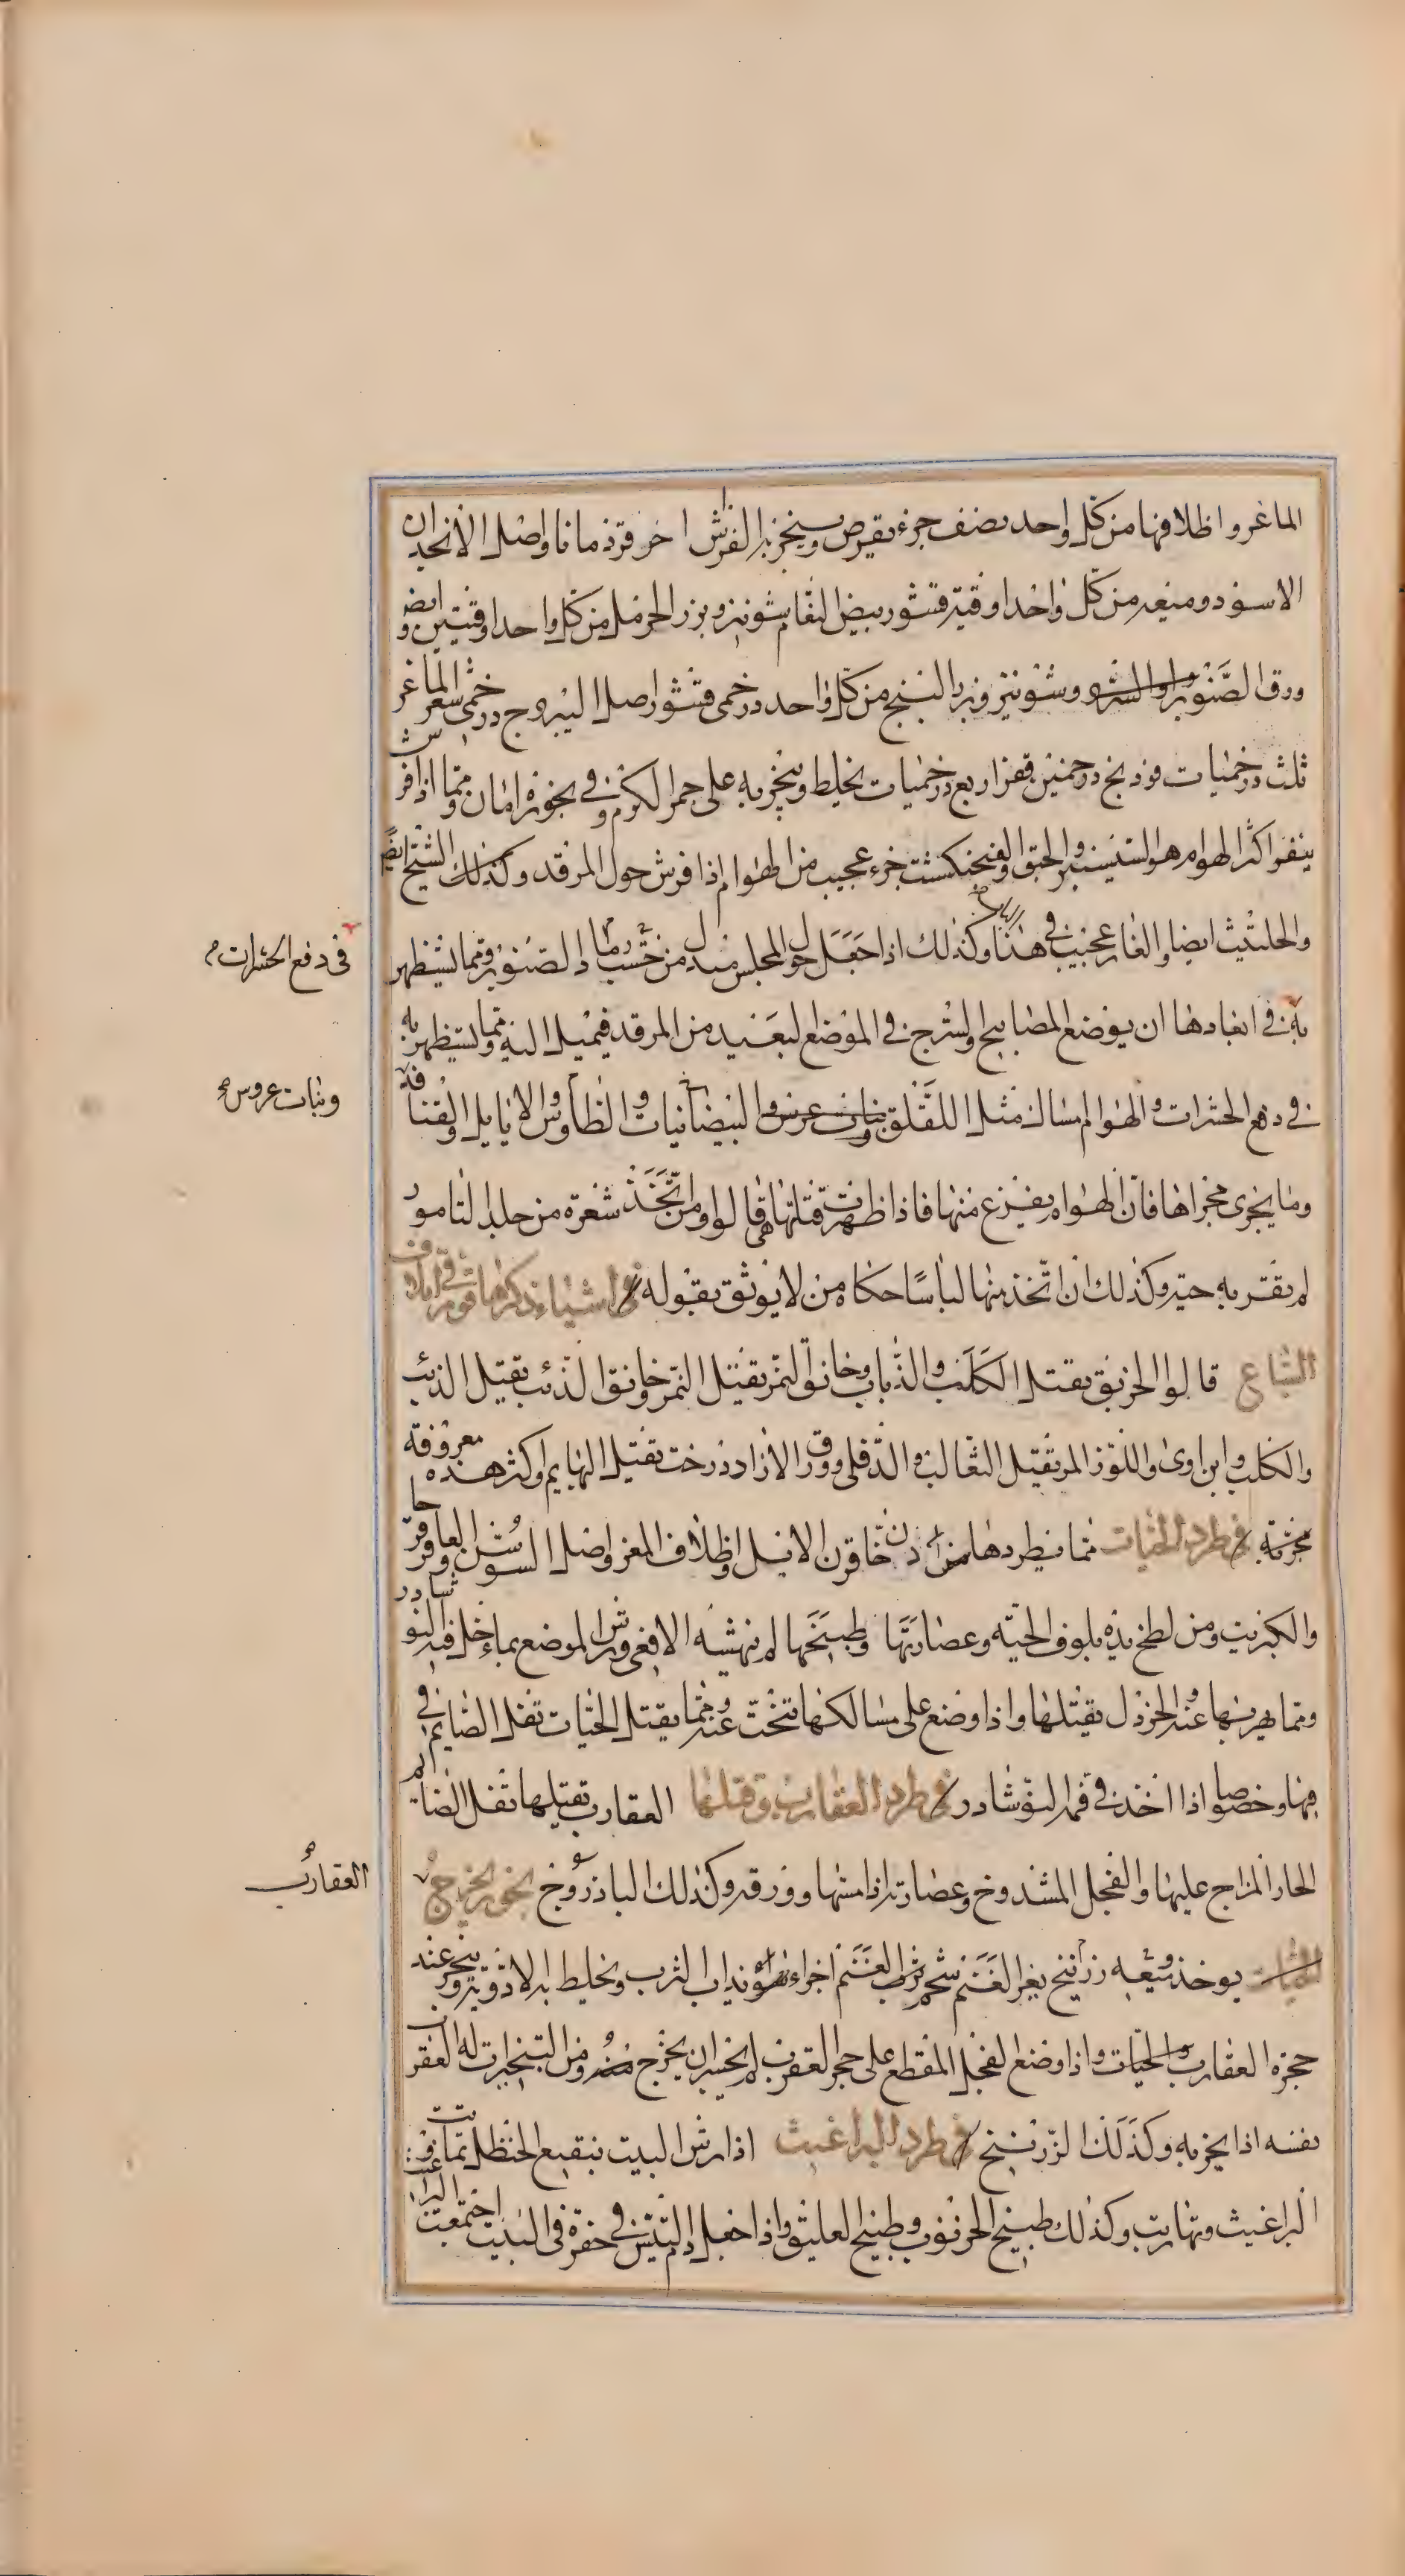 الماغر و اظلافها من كل واحد نصف جزء يقرص ويبخر به الفرش اخر قردمانا واصل الانجدان
الاسود وميعه من كل واحد اوقيه قشور بيض النعام شونيز وبزر الحرمل من كل واحد اوقيتين ايضا و
ورق الصنوبر وشونيز وبزر البنج من كل واحد درخمى قشور اصل اليبروج درخمى شعر الماغر
ثلث درخميات فوذنج درخمين قفر اربع درخميات يخلط ويبخر به على جمر الكرم وفى بخوره امان ومما اذا فرش
ينفر اكثر الهوام هو السيسنبر والحبق والفنجنكشت جزء عجيب من الهوام اذا فرش حول المرقد وكذلك الشيح ايضا
والحلتيث ايضا والغار عجيب فى هذا وكذلك اذا جعل حول المجلس مندل من خشب رماد الصنوبر ومما يستظهر
به فى ابعادها ان يوضع المصابيح والسرج فى الموضع البعيد من المرقد فيميل اليه ومما يستظهر به
فى دفع الحشرات والهوام امساك مثل اللقلق وبنات عرس والبيضانيات والطاوس والايايل والقنافذ
وما يجرى مجراها فان الهوام يفزع منها فاذا ظهرت قتلتها هى قالوا ومن اتخذ شعرة من جلد التامور
لم يقربه حيه وكذلك ان اتخذ منها لباسا حكاه من لا يوثق بقوله فى اشياء ذكرها قوم فى اتلاف
السباع قالوا الخربق يقتل الكلب والذباب وخانق النمر يقتل النمر وخانق الذئب يقتل الذئب
والكلب وابن اوى واللوز المر يقتل الثعالب والدفلى وورق الازاد درخت يقتل البهايم واكثر هذه معروفة
مجربة فى طرد الحيات مما يطردها دخان قرن الايل واظلاف المعز واصل السوسن والعاقرقرحا
والكبريت ومن لطخ يده بلوف الحيه وعصارتها وطبيخها لم ينهشه الافعى ورش الموضع بماء حل فيه النوشادر
ومما يهربها عنه والخردل يقتلها واذا وضع على مسالكها تنحت عنه ومما يقتل الحيات تفل الصايم فى
فمها وخصوصا اذا اخذ فى فمه النوشادر فى طرد العقارب وقتلها العقارب يقتلها تفل الصايم
الحار المزاج عليها والفجل المشدوخ وعصارته اذا مسها وورقه وكذلك الباذروج بخور يخرج
يوخذ ميعه زرنيخ بعر الغنم شحم ثرب الغنم اجزاء سواء يذاب الثرب ويخلط به الادويه ويبخر عند
حجره العقارب والحيات واذا وضع الفجل المقطع على حجر العقرب لم يجسر ان يخرج ومن التبخيرات له العقرب
نفسه اذا بخر به وكذلك الزرنيخ فى طرد البراغيث اذا رش البيت بنقيع الحنظل تماوتت
البراغيث وتهاربت وكذلك طبيخ الخرنوب وطبيخ العليق واذا جعل دم التيس فى حفرة فى البيت اجتمعت البراغيث
فى دفع الحشرات
وبنات عروس
العقارب